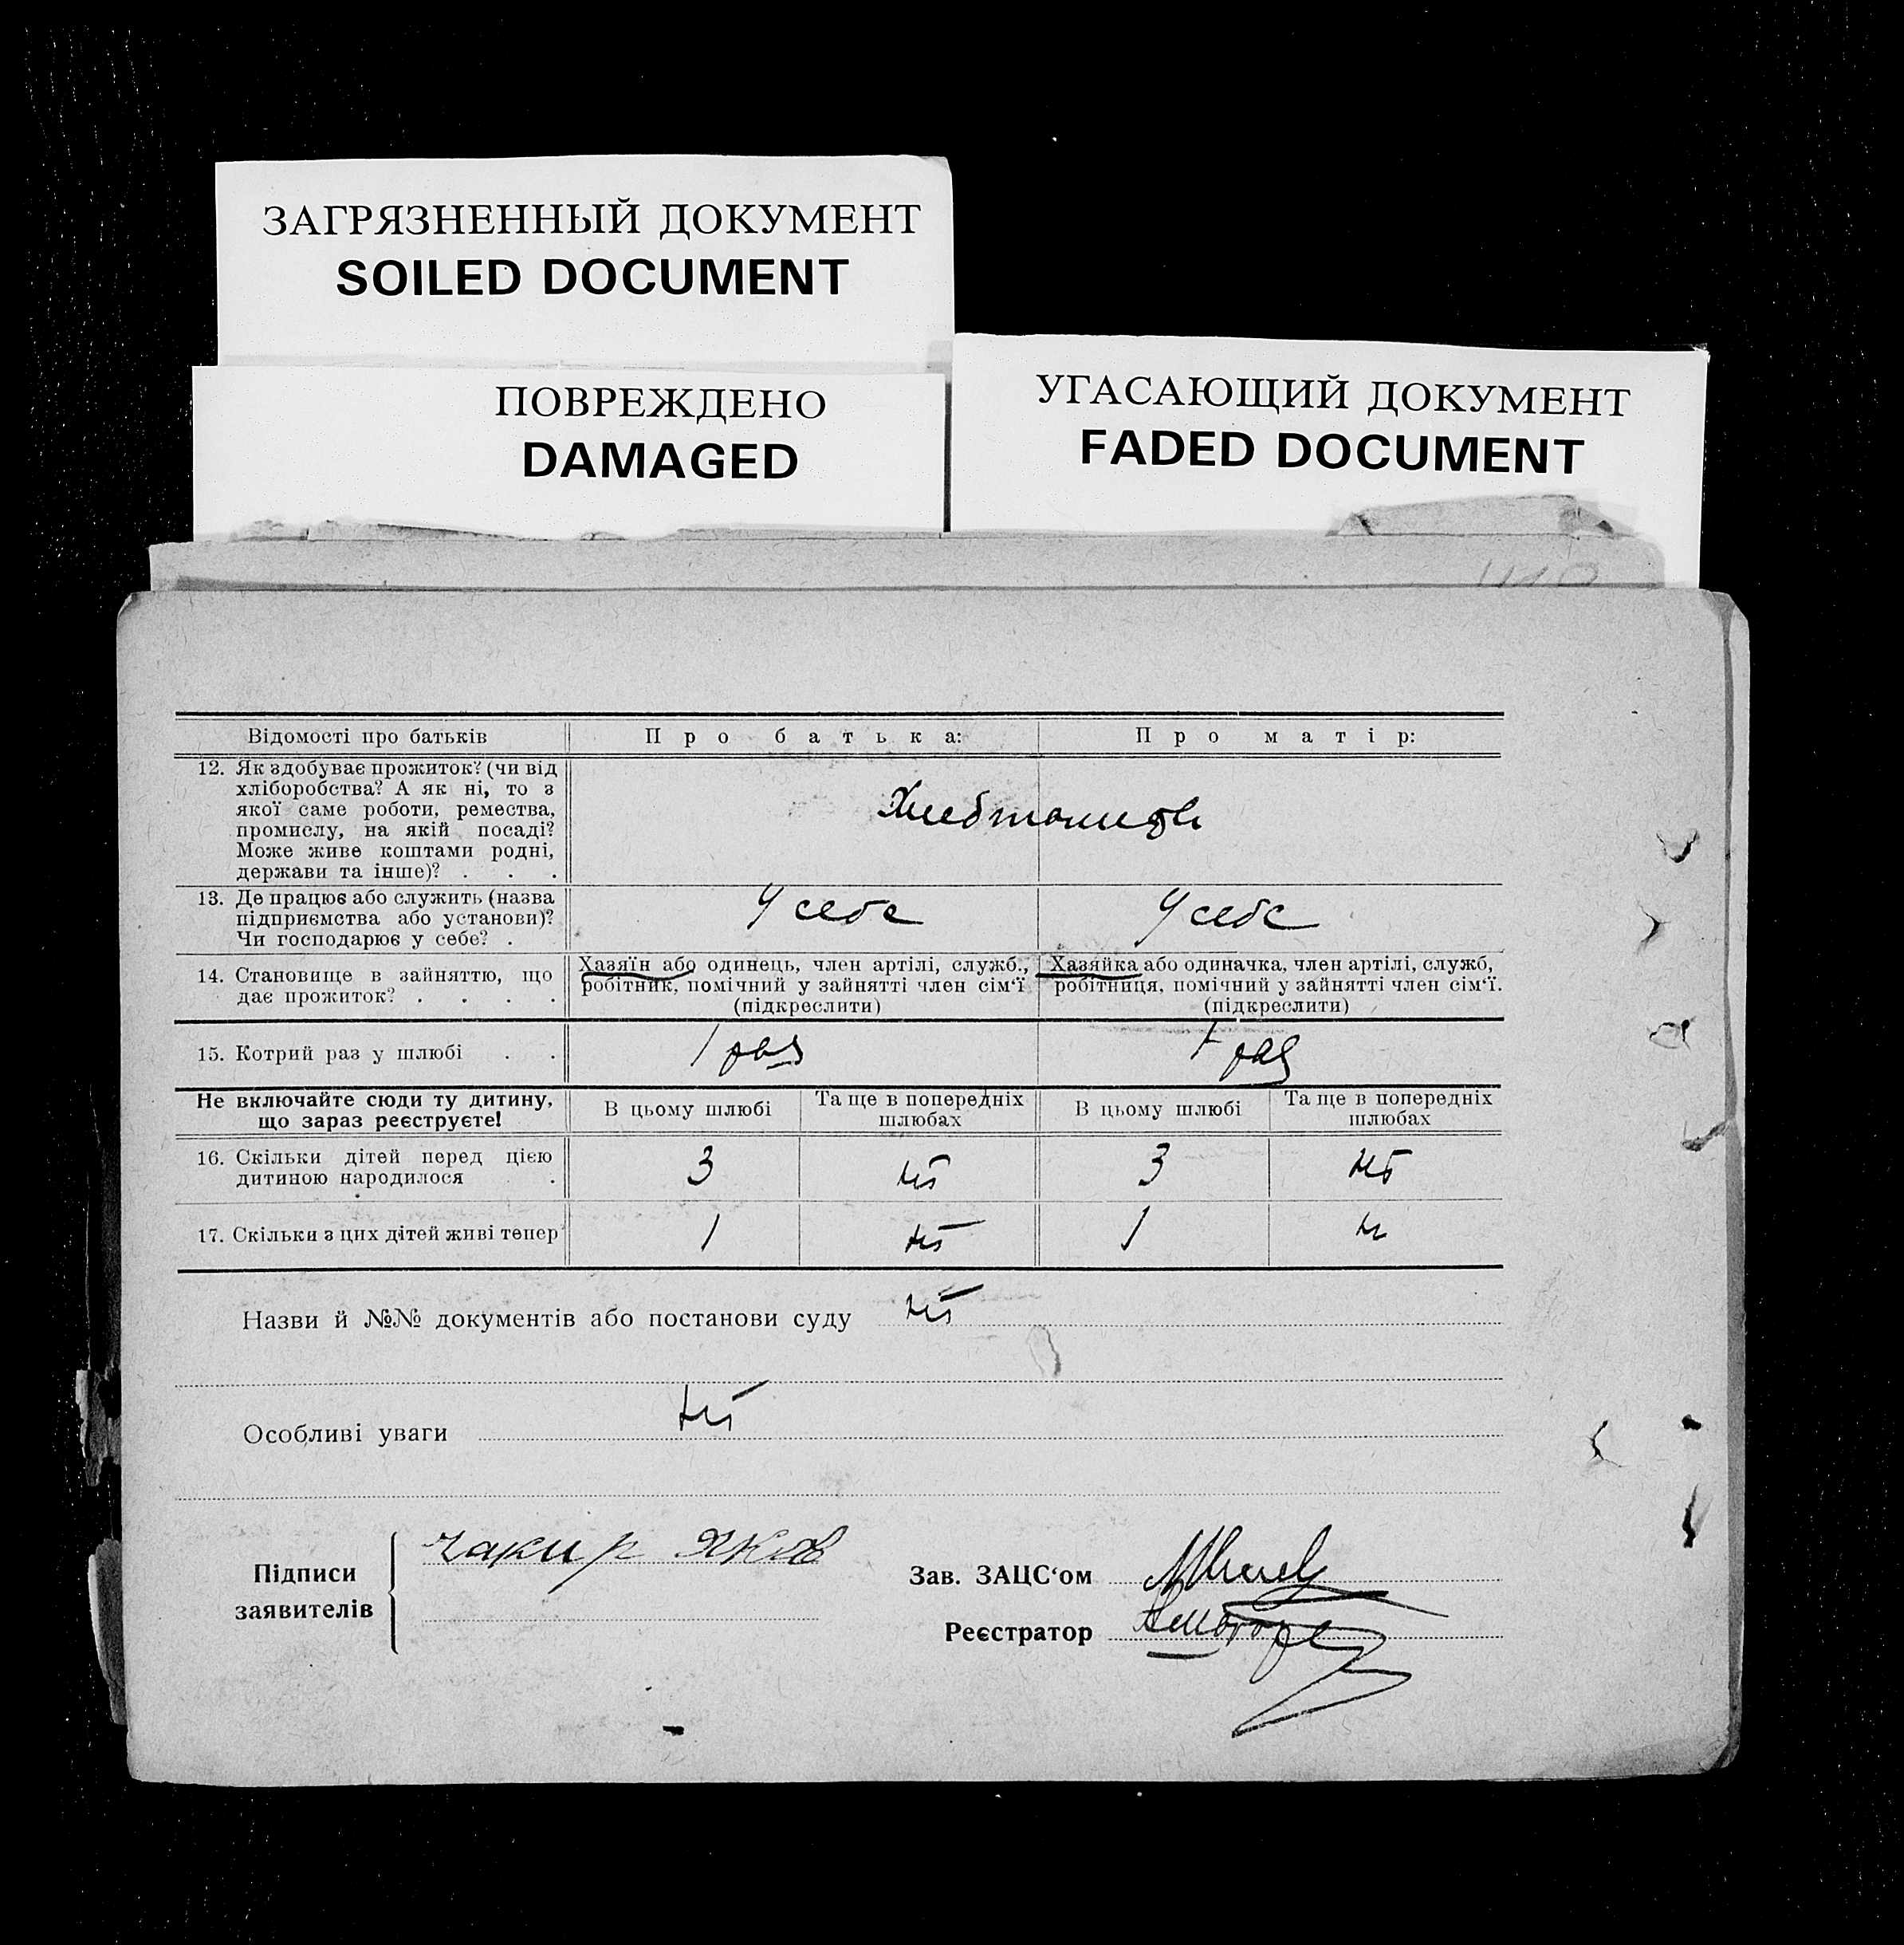 ЗАГРЯЗНЕННЫЙ ДОКУМЕНТ
SOILED DOCUMENT
ПОВРЕЖДЕНО
DAMAGED
УГАСАЮЩИЙ ДОКУМЕНТ
FADED DOCUMENT
Відомості про батьків
Про батька:
Про матір:
12. Як здобуває прожиток? (чи від
хліборобства? А як ні, то з
якої саме роботи, ремества,
промислу, на якій посаді?
Може живе коштами родні,
держави та інше)? . . .
13. Де працює або служить (назва
підприємства або установи)?
Чи господарює у себе? .
У себе
У себе
14. Становище в зайняттю, що
дає прожиток? . . . .
Хазяїн або одинець, член артілі, служб.,
робітник, помічний у зайнятті член сім‘ї
(підкреслити)
Хазяйка або одиначка, член артілі, служб,
робітниця, помічний у зайнятті член сім‘ї.
(підкреслити)
15. Котрий раз у шлюбі . .
1 раз
1 раз
Не включайте сюди ту дитину,
що зараз реєструєте!
В цьому шлюбі
Та ще в попередніх
шлюбах
В цьому шлюбі
Та ще в попередніх
шлюбах
16. Скільки дітей перед цією
дитиною народилося .
3
ні
3
ні
17. Скільки з цих дітей живі тепер
1
ні
1
ні
Назви й №№ документів або постанови суду ні
Особливі уваги ні
Підписи
заявителів
чакир Яков
Зав. ЗАЦС‘ом
Реєстратор